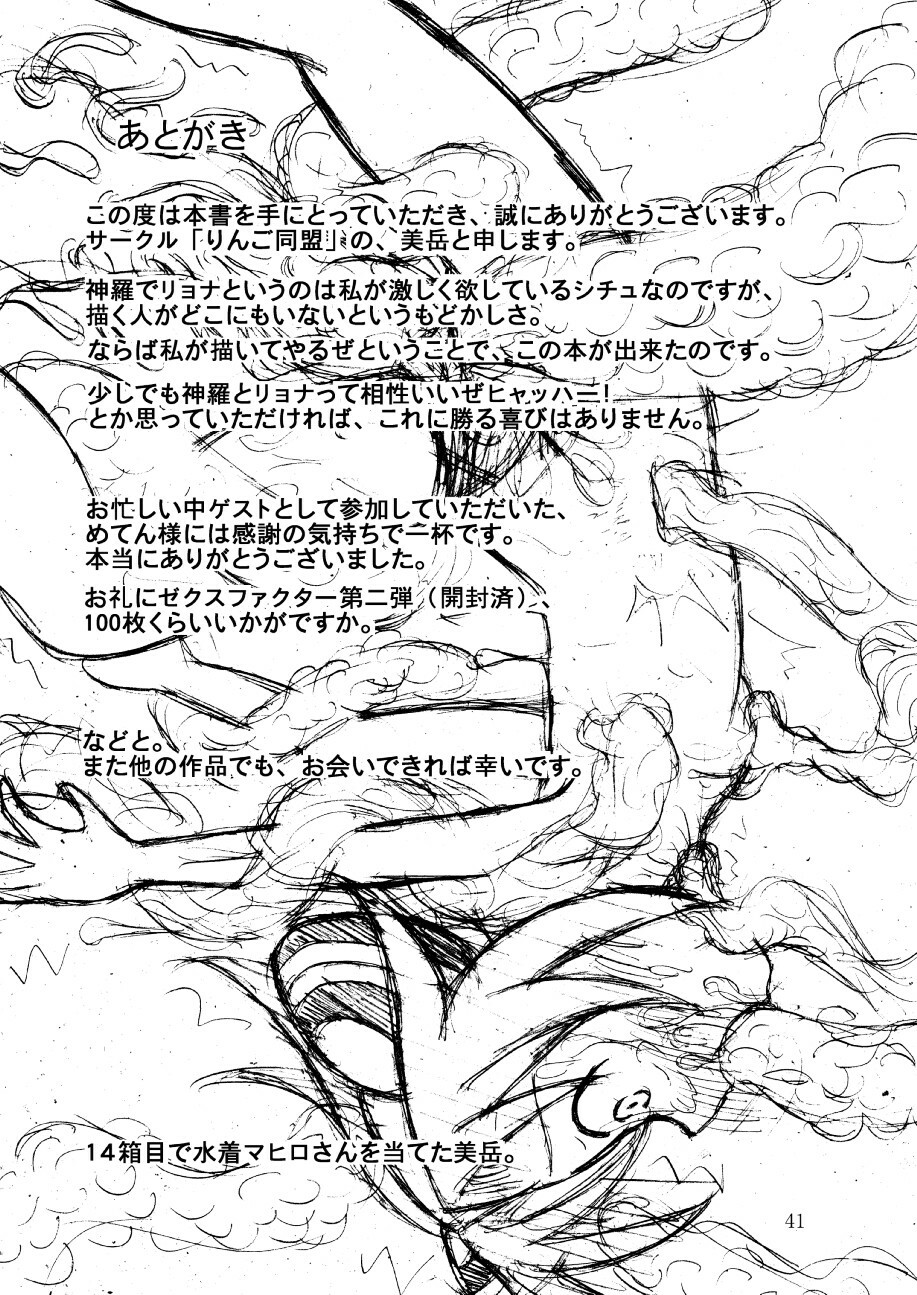 あとがき
この度は本書を手にとっていただき、誠にありがとうございます。
サークル「りんご同盟」の、美岳と申します。
神羅でリョナというのは私が激しく欲しているシチュなのですが、
描く人がどこにもいないというもどかしさ。
ならば私が描いてやるぜということで、この本が出来たのです。
少しでも神羅とリョナって相性いいぜヒャッハー!
とか思っていただければ、これに勝る喜びはありません。
お忙しい中ゲストとして参加していただいた、
めてん様には感謝の気持ちで一杯です。
本当にありがとうございました。
お礼にゼクスファクター第二弾（開封済）、
100枚くらいいかがですか。
などと。
また他の作品でも、お会いできれば幸いです。
14箱目で水着マヒロさんを当てた美岳。
41